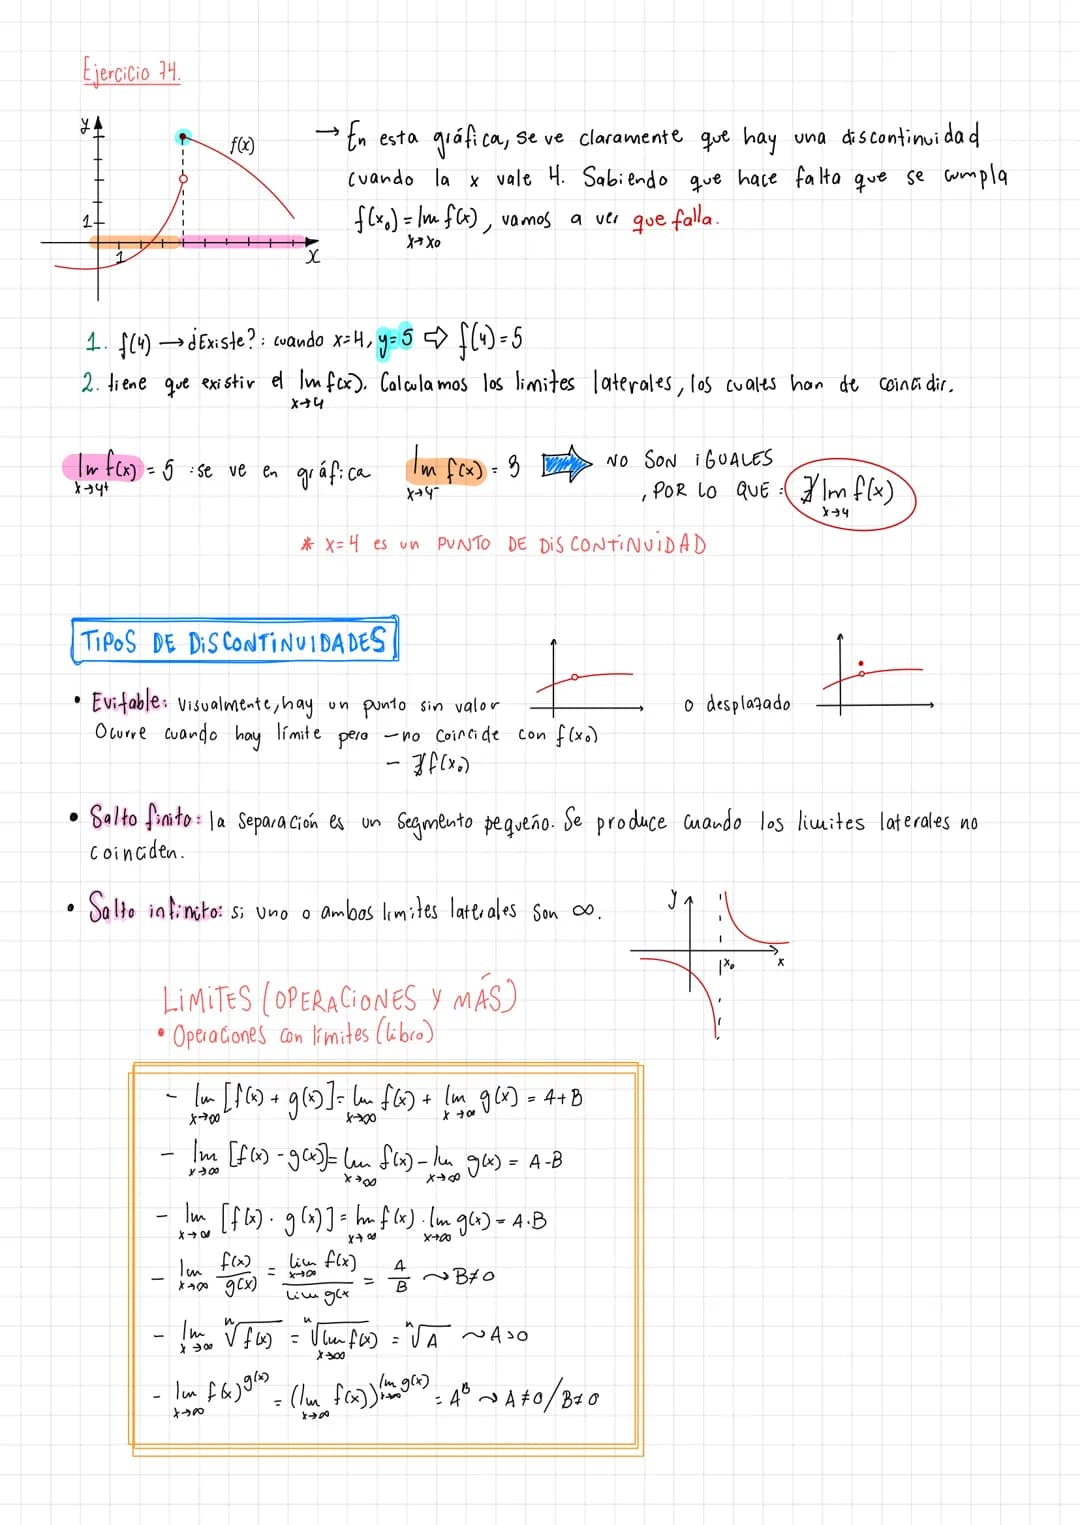 Ejercicio 74.
y
f(x)
1
1
x
→ En esta gráfica, se ve claramente que hay una discontinuidad
cuando la x vale 4. Sabiendo que hace falta que se cumpla
f(x₀) = lm f(x), vamos a ver que falla.
x→x₀
1. f(4) → ¿Existe?: cuando x=4, y=5 ⇨ f(4)=5
2. tiene que existir el lm f(x). Calculamos los limites laterales, los cuales han de coincidir.
x→4
lm f(x) = 5 : se ve en gráfica lm f(x) = 3 ⇨ NO SON IGUALES
x→4⁺ x→4⁻ , POR LO QUE : ∄ lm f(x)
x→4
* x=4 es un PUNTO DE DISCONTINUIDAD
TIPOS DE DISCONTINUIDADES
• Evitable: Visualmente, hay un punto sin valor o desplazado
Ocurre cuando hay límite pero - no coincide con f(x₀)
- ∄ f(x₀)
• Salto finito: la separación es un segmento pequeño. Se produce cuando los limites laterales no
coinciden.
• Salto infinito: si uno o ambos limites laterales son ∞.
y
x₀
x
LIMITES (OPERACIONES Y MÁS)
• Operaciones con límites (libro)
- lm [f(x) + g(x)] = lm f(x) + lm g(x) = A+B
x→∞ x→∞ x→∞
- lm [f(x) - g(x)] = lm f(x) - lm g(x) = A-B
x→∞ x→∞ x→∞
- lm [f(x) · g(x)] = lm f(x) · lm g(x) = A·B
x→∞ x→∞ x→∞
- lm f(x)/g(x) = lim f(x)/lim g(x = A/B ~ B≠0
x→∞ x→∞
- lm ⁿ√f(x) = ⁿ√lm f(x) = ⁿ√A ~ A>0
x→∞ x→∞
- lm f(x)^g(x) = (lm f(x))^lm g(x) = A^B ~ A≠0/B≠0
x→∞ x→∞ x→∞